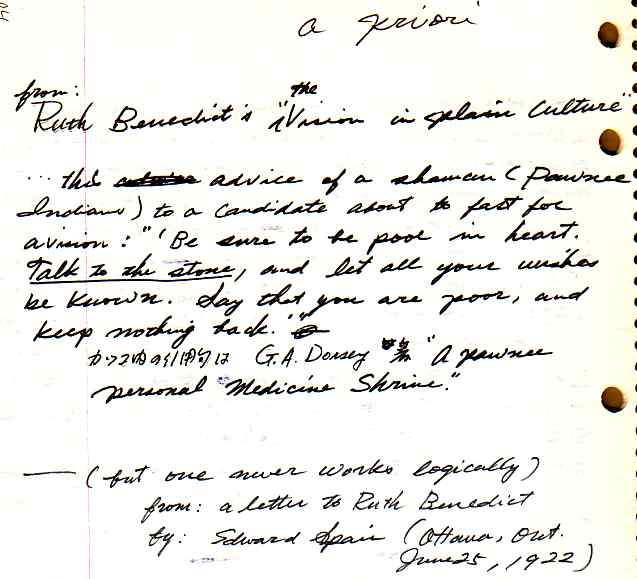 a priori
from:
the
Ruth Benedict's "Vision in plain Culture"
... this advice of a shaman (Pawnee
Indians) to a candidate about to fast for
a vision: "'Be sure to be poor in heart.
Talk to the stone, and let all your wishes
be known. Say that you are poor, and
keep nothing back.'"
カッコ内の引用は G.A. Dorsey "A pawnee
personal Medicine Shrine."
— (but one never works logically)
from: a letter to Ruth Benedict
by: Edward Spair (Ottawa, Ont.
June 25, 1922)